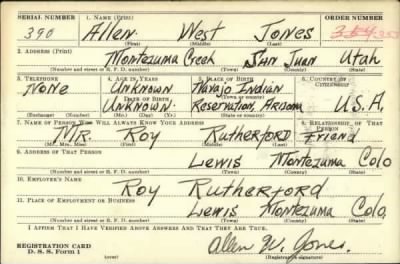 SERIAL NUMBER 1. NAME (Print) ORDER NUMBER
390 Allen West Jones
(First) (Middle) (Last)
2. ADDRESS (Print)
Montezuma Creek San Juan Utah
(Number and street or R. F. D. number) (Town) (County) (State)
3. TELEPHONE 4. AGE IN YEARS 5. PLACE OF BIRTH 6. COUNTRY OF CITIZENSHIP
None Unknown Navajo Indian
DATE OF BIRTH (Town or county)
Unknown Reservation, Arizona U.S.A.
(Exchange) (Number) (Mo.) (Day) (Yr.) (State or country)
7. NAME OF PERSON WHO WILL ALWAYS KNOW YOUR ADDRESS 8. RELATIONSHIP OF THAT PERSON
MR. Roy Rutherford Friend
(Mr., Mrs., Miss) (First) (Middle) (Last)
9. ADDRESS OF THAT PERSON
Lewis Montezuma Colo
(Number and street or R. F. D. number) (Town) (County) (State)
10. EMPLOYER'S NAME
Roy Rutherford
11. PLACE OF EMPLOYMENT OR BUSINESS
Lewis Montezuma Colo.
(Number and street or R. F. D. number) (Town) (County) (State)
I AFFIRM THAT I HAVE VERIFIED ABOVE ANSWERS AND THAT THEY ARE TRUE.
REGISTRATION CARD
D. S. S. Form 1 Allen W. Jones.
(over) (Registrant's signature)